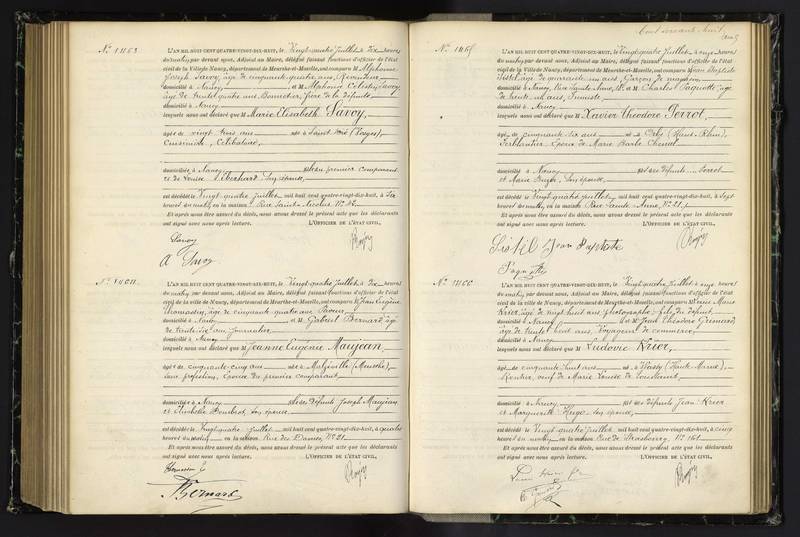 L'AN MIL HUIT CENT QUATRE-VINGT-DIX-HUIT, le Vingt-quatre Juillet à Dix heures
du matin par devant nous, Adjoint au Maire, délégué faisant fonctions d'officier de l'état
civil de la Ville de Nancy, département de Meurthe-et-Moselle, ont comparu M Alphonse
Joseph Savoy, âgé de cinquante quatre ans,
domicilié à Nancy et M Alphonse Célestin Savoy
âgé de trente quatre ans, Bonnetier, frère de la défunte
domicilié à Nancy
lesquels nous ont déclaré que M Marie Elisabeth Savoy,
âgée de vingt trois ans née à Saint Dié (Vosges),
Cuisinière, Célibataire,
domiciliée à Nancy fille du premier comparant
et de Louise Eberhard son épouse,
est décédée le Vingt-quatre Juillet mil huit cent quatre-vingt-dix-huit, à Six
heures du matin en la maison Rue Saint Nicolas, N°
Et après nous être assuré du décès, nous avons dressé le présent acte que les déclarants
ont signé avec nous après lecture. L'OFFICIER DE L'ÉTAT CIVIL,
Savoy
A Savoy
L'AN MIL HUIT CENT QUATRE-VINGT-DIX-HUIT, le Vingt-quatre Juillet à Dix heures
du matin par devant nous, Adjoint au Maire, délégué faisant fonctions d'officier de l'état
civil de la ville de Nancy, département de Meurthe-et-Moselle, ont comparu M Jean Eugène
âgé de cinquante quatre ans
domicilié à Nancy et M Gabriel Bernard âgé
de trente six ans journalier
domicilié à Nancy
lesquels nous ont déclaré que M Jeanne Eugénie Maujean,
âgée de cinquante-cinq ans née à (Meuse),
sans profession, Épouse du premier comparant
domiciliée à Nancy fille des défunts Joseph Maujean
et son épouse
est décédée le Vingt-quatre Juillet mil huit cent quatre-vingt-dix-huit, à quatre
heures du matin en la maison Rue des Dames, N° 21
Et après nous être assuré du décès, nous avons dressé le présent acte que les déclarants
ont signé avec nous après lecture. L'OFFICIER DE L'ÉTAT CIVIL,
Bernard
Cent soixante huit
N° 1465
L'AN MIL HUIT CENT QUATRE-VINGT-DIX-HUIT, le Vingt-quatre Juillet à onze heures
du matin par devant nous, Adjoint au Maire, délégué faisant fonctions d'officier de l'état
civil de la Ville de Nancy, département de Meurthe-et-Moselle, ont comparu M Jean Baptiste
Sistel âgé de quarante un ans, Garçon de magasin
domicilié à Nancy, Rue Sainte Anne, et M Charles Paquotte âgé
de trente un ans,
domicilié à Nancy
lesquels nous ont déclaré que M Xavier Théodore Perrot,
âgé de cinquante six ans né à Orbey (Haut Rhin),
Ferblantier, Époux de Marie Barbe
domicilié à Nancy fils des défunts Perrot
et Marie son épouse,
est décédé le Vingt-quatre juillet mil huit cent quatre-vingt-dix-huit, à Sept
heures du matin en la maison Rue Sainte-Anne, N°
Et après nous être assuré du décès, nous avons dressé le présent acte que les déclarants
ont signé avec nous après lecture. L'OFFICIER DE L'ÉTAT CIVIL,
Sistel Jean Baptiste
Paquotte
N° 1466
L'AN MIL HUIT CENT QUATRE-VINGT-DIX-HUIT, le Vingt-quatre Juillet à onze heures
du matin par devant nous, Adjoint au Maire, délégué faisant fonctions d'officier de l'état
civil de la Ville de Nancy, département de Meurthe-et-Moselle, ont comparu M
Krier, âgé de vingt huit ans photographe fils du défunt
domicilié à Nancy et M Paul Théodore
âgé de trente huit ans, Voyageur de commerce
domicilié à Nancy
lesquels nous ont déclaré que M Ludovic Krier,
âgé de cinquante huit ans né à (Haute Marne),
Rentier, veuf de Marie Louise de
domicilié à Nancy fils des défunts Jean Krier
et Marguerite Hugo son épouse,
est décédé le Vingt-quatre Juillet mil huit cent quatre-vingt-dix-huit, à cinq
heures du matin en la maison Rue de Strasbourg, N° 161
Et après nous être assuré du décès, nous avons dressé le présent acte que les déclarants
ont signé avec nous après lecture. L'OFFICIER DE L'ÉTAT CIVIL,